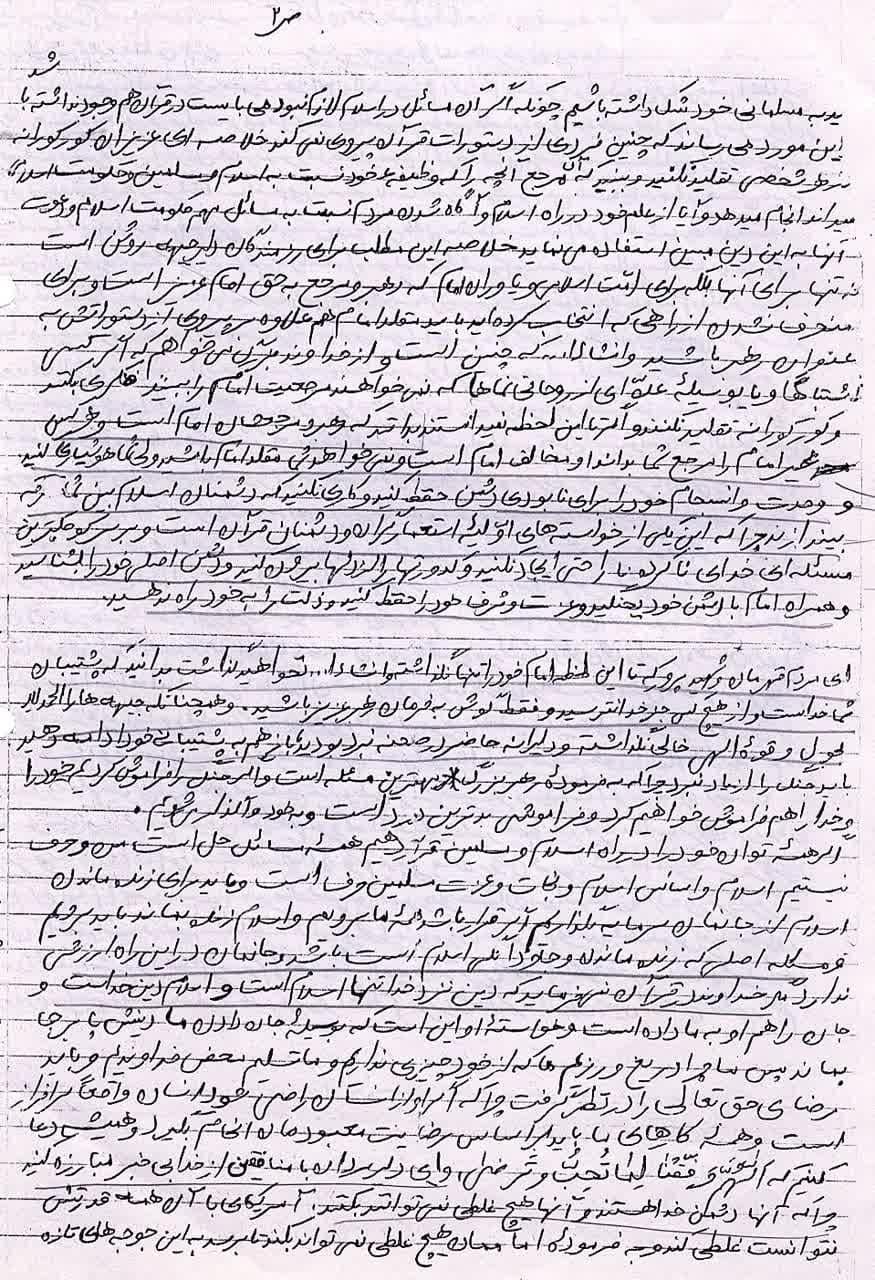 ص ۲
شد
ید به مسلمانی خود شک داشته باشیم چونکه اگر آن مسائل در اسلام لازم نبود می بایست در قرآن هم وجود نداشته با
این مورد می رساند که چنین فردی از دستورات قرآن پیروی نمی کند خلاصه ای عزیزان کورکورانه
از هر شخصی تقلید نکنید و ببینید که آن مرجع آنچه را که وظیفه خود نسبت به اسلام و مسلمین و حکومت اسلامی
میداند انجام میدهد و آیا از علم خود در راه اسلام و آگاه شدن مردم نسبت به مسائل مهم حکومت اسلام و دعوت
آنها به این دین مبین استفاده می نماید خلاصه این مطلب برای رزمندگان در جبهه روشن است
نه تنها برای آنها بلکه برای امت اسلامی و یاوران امام که رهبر و مرجع به حق امام عزیز است و برای
منحرف نشدن از راهی که انتخاب کرده اید باید مقلد امام هم علاوه بر پیروی از دستوراتش به
عنوان رهبر باشید و انشاءالله که چنین است و از خداوند بزرگ می خواهم که اگر کسی
اشتباهاً و یا بوسیله عده ای از روحانی نماها که نمی خواهند مرجعیت امام را ببینند فکری بکند
و کورکورانه تقلید نکنند و اگر تا این لحظه نمیدانستند بدانند که رهبر و مرجعمان امام است و هر کس
غیر امام را مرجع شما بداند او مخالف امام است و نمی خواهد کسی مقلد امام باشد ولی شما هوشیاری کنید
و وحدت و انسجام خود را برای نابودی دشمن حفظ کنید و کاری نکنید که دشمنان اسلام بین شما تفرقه
بیندازند چرا که این یکی از خواسته های اولیه استعمارگران و دشمنان قرآن است و بر سر کوچکترین
مسئله ای خدای ناکرده نا راحتی ایجاد نکنید و کدورتها را از دلها بیرون کنید و دشمن اصلی خود را بشناسید
و همراه امام با دشمن خود بجنگید و عزت و شرف خود را حفظ کنید و ذلت را به خود راه ندهید.
ای مردم قهرمان و شهید پرور که تا این لحظه امام خود را تنها نگذاشته و انشاءا... نخواهید گذاشت بدانید که پشتیبان
شما خداست و از هیچ کس جز خدا نترسید و فقط گوش به فرمان رهبر عزیز باشید. و همچنانکه جبهه ها را الحمدلله
بحول و قوه الهی خالی نگذاشته و دلیرانه حاضر در صحنه نبرد بودید باز هم به پشتیبانی خود ادامه دهید
باید جنگ را از یاد نبرد چرا که به فرموده رهبر بزرگ مهمترین مسئله است و اگر جنگ را فراموش کردیم خود را
و خدا را هم فراموش خواهیم کرد و فراموشی بدترین درد است و به خود واگذار می شویم.
اگر همه توان خود را در راه اسلام و مسلمین قرار دهیم همه مسائل حل است من و حرف
نیستیم اسلام و اساس اسلام و نجات و عزت مسلمین حرف است و باید برای زنده ماندن
اسلام از جانمان سرمایه بگذاریم اگر قرار باشد همه ما برویم و اسلام زنده بماند باید برویم
و مسئله اصلی که زنده ماندن و جاودانگی اسلام است باشد و جانمان در این راه ارزشی
ندارد مگر خداوند در قرآن نمی فرماید که دین نزد خدا تنها اسلام است و اسلام دین خداست و
جان را هم او به ما داده است و خواسته او این است که بوسیله جان دادن ما دینش پا برجا
بماند پس ما چرا دریغ ورزیم ما که از خود چیزی نداریم و ما تسلیم محض خداوندیم و باید
رضای حق تعالی را در نظر گرفت چرا که اگر او از انسان راضی شود انسان واقعاً سرافراز
است و همه کارهای ما باید بر اساس رضایت معبودمان انجام بگیرد و همیشه دعا
کنیم که الهی وفقنا لما تحب و ترضی. وای دلیرمردان با منافقین از خدا بی خبر مبارزه کنید
چرا که آنها دشمن خدا هستند و آنها هیچ غلطی نمی توانند بکنند. آمریکای با آن همه قدرتش
نتوانست غلطی کند و به فرموده اماممان هیچ غلطی نمی تواند بکند تا برسد به این جوجه های تازه